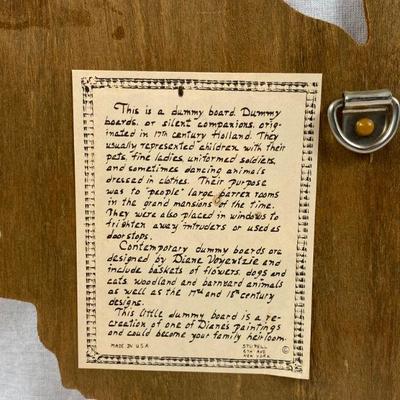 This is a dummy board. Dummy
boards, or silent companions, orig-
inated in 17th century Holland. They
usually represented children with their
pets, fine ladies, uniformed soldiers,
and sometimes dancing animals
dressed in clothes. Their purpose
was to "people" large barren rooms
in the grand mansions of the time.
They were also placed in windows to
frighten away intruders or used as
doorstops.
Contemporary dummy boards are
designed by Diane Voyentzie and
include baskets of flowers, dogs and
cats, woodland and barnyard animals
as well as the 17th and 18th century
designs.
This little dummy board is a re-
creation of one of Diane's paintings
and could become your family heirloom.
MADE IN U.S.A.
STUPELL
6TH AVE
NEW YORK
©